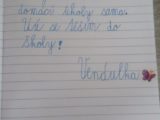 domácí školy sama.
Už se těším do
školy!
Vendulka